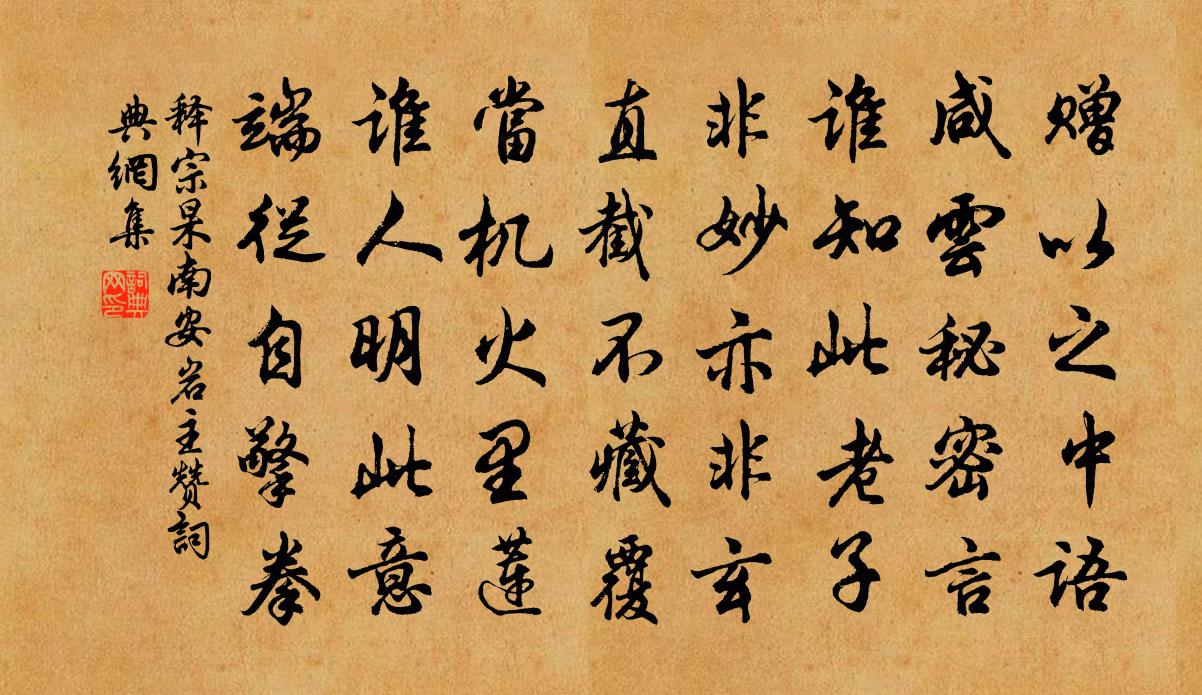 赠以之中语
咸雲秘密言
谁知此老子
非妙亦非玄
直截不藏覆
當机火里莲
谁人明此意
端從自擎拳
释宗杲南安岩主赞詞
典網集
詞典网印